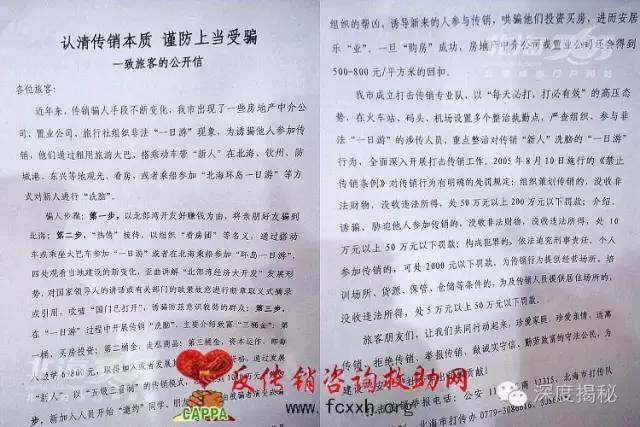 认清传销本质 谨防上当受骗
—致旅客的公开信
各位旅客：
近年来，传销骗人手段不断变化，我市出现了一些房地产中介公
司、置业公司、旅行社组织非法“一日游”现象，为诱骗他人参加传
销，他们通过租用旅游大巴、搭乘动车带“新人”在北海、钦州、防
城港、东兴等地观光、看房，或者乘搭参加“北海环岛一日游”等方
式对新人进行“洗脑”。
骗人步骤：第一步，以北部湾开发好赚钱为由，将亲朋好友骗到
北海；第二步，“热情”接待，以组织“看房团”等名义，通过搭动
车或乘坐大巴车参加“一日游”或者在北海乘船参加“环岛一日游”，
四处观看当地建设的新变化，歪曲讲解“北部湾经济大开发”发展形
势，对国家领导人的讲话或有关部门的政策故意进行断章取义式摘录
或引用，吹嘘“国门已打开”，诱骗防范意识较弱的群众；第三步，
在“一日游”过程中开展传销“洗脑”，主要介绍致富“三桶金”：第
一桶，买房投资；第二桶金，走私商品；第三桶金，资本运作，即每
人缴学69800元，取得加入或者发展
人”，以“五级三晋制”的传销模式，
步，新加入人员开始“邀约”同学、朋友
组织的帮凶，诱导新来的人参与传销，哄骗他们投资买房，进而安居
乐“业”。一旦“购房”成功，房地产中介公司或置业公司还会得到
500-800元/平方米的回扣。
我市成立打击传销专业队，以“每天必打，打必有效”的高压态
势，在火车站、码头、机场设置多个整治执勤点，严查组织、参与非
法“一日游”的涉传人员，重点整治对传销“新人”洗脑的“一日游”
行为，全面深入开展打击传销工作。2005年8月10日施行的《禁止
传销条例》对传销行为有明确的处罚规定：组织策划传销的，没收非
法财物，没收违法所得，处50万元以上200万元以下罚款；介绍、
诱骗、胁迫他人参加传销的，没收非法财物，没收违法所得，处10
万元以上50万元以下罚款；构成犯罪的，依法追究刑事责任。个人
参加传销的，可处2000元以下罚款。为传销行为提供经营场所、培
训场所、货源、保管、仓储等条件的，为及传销人员提供居住场所的，
没收违法所得，处5万元以上50万元以下罚款。
旅客朋友们，让我们共同行动起来，珍爱家庭，珍爱亲情，远离
传销，拒绝传销，举报传销，做诚实守信、勤劳致富的守法公民，为
建设
贡献！
打击传销举报电话：公安110
12315、北海市打传队
北海市打传办0779-3086616、
反传销咨询救助网
CAPPA
www.fcxxh.org
深度揭秘
北海365